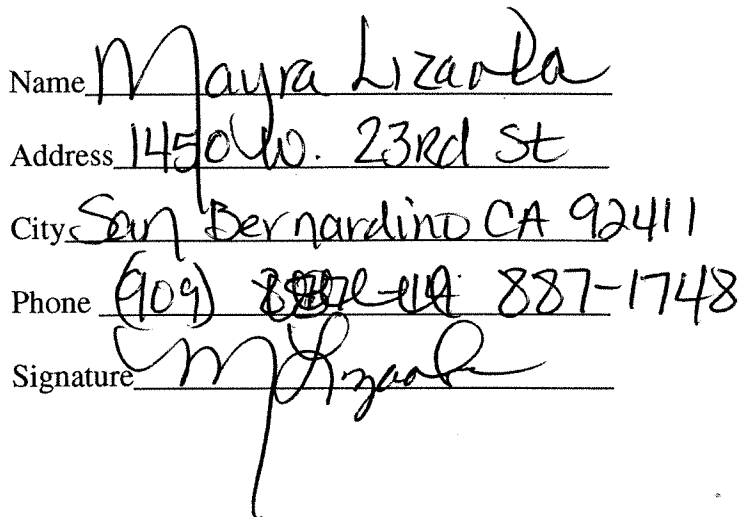 Name Mayra Lizarda
Address 1450 W. 23Rd St
City San Bernardino CA 92411
Phone (909) 887-1748
Signature